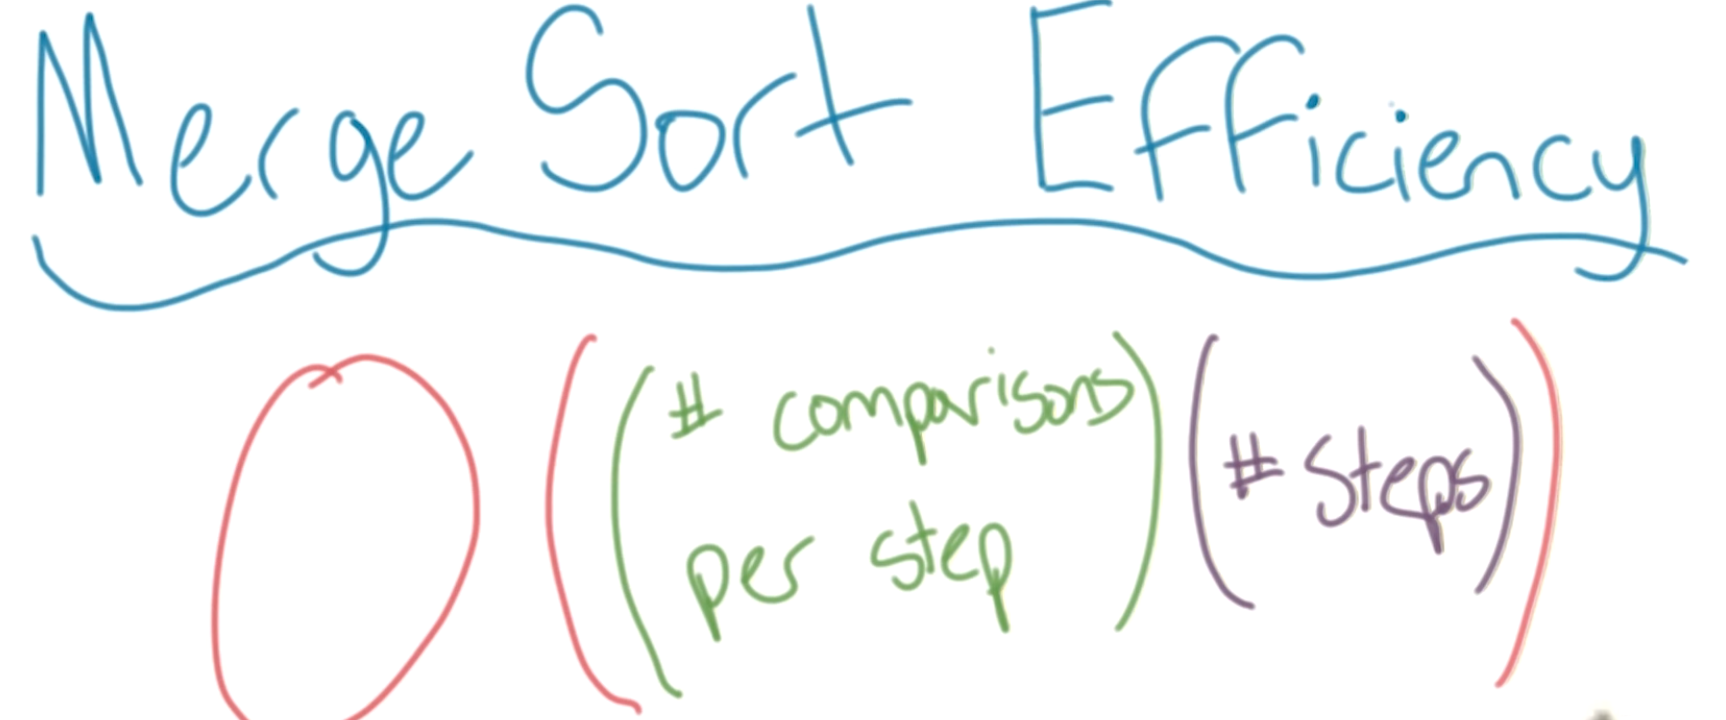 Merge Sort Efficiency
O((# comparisons per step)(# steps))